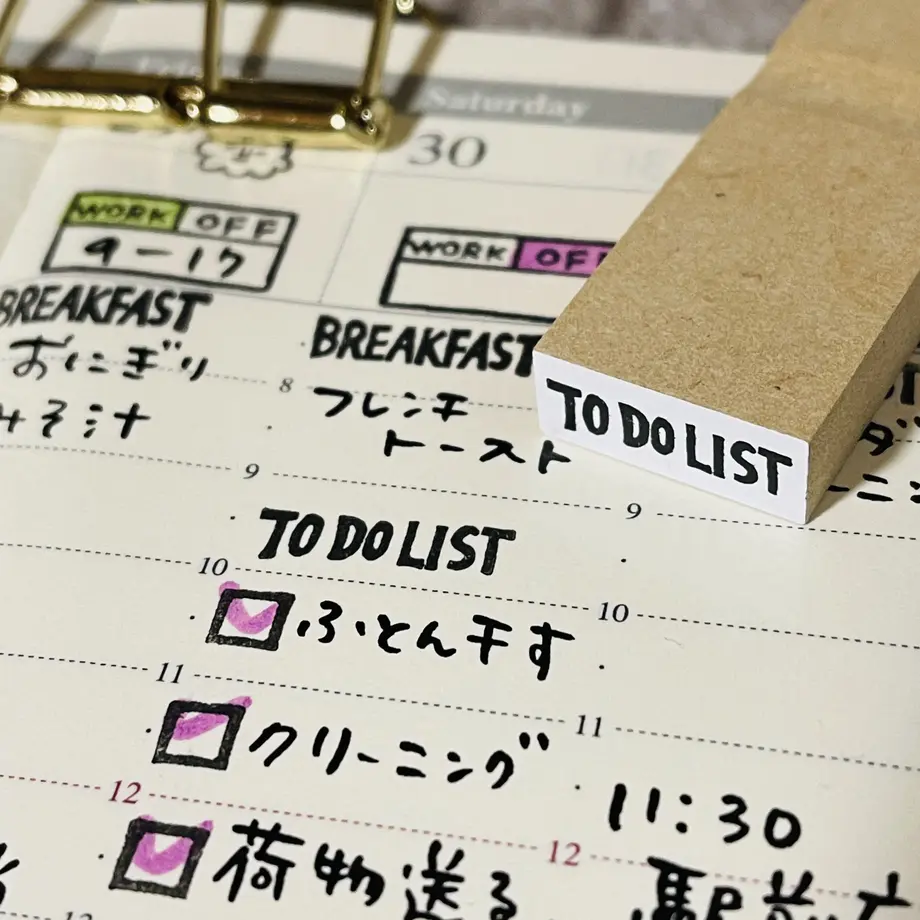 Saturday
30
WORK OFF
9-17
WORK OFF
BREAKFAST
おにぎり
みそ汁
8
BREAKFAST
フレンチ
トースト
TO DO LIST
9
9
TO DO LIST
10
10
ふとん干す
11
11
クリーニング
12
12
11:30
荷物送る
駅前